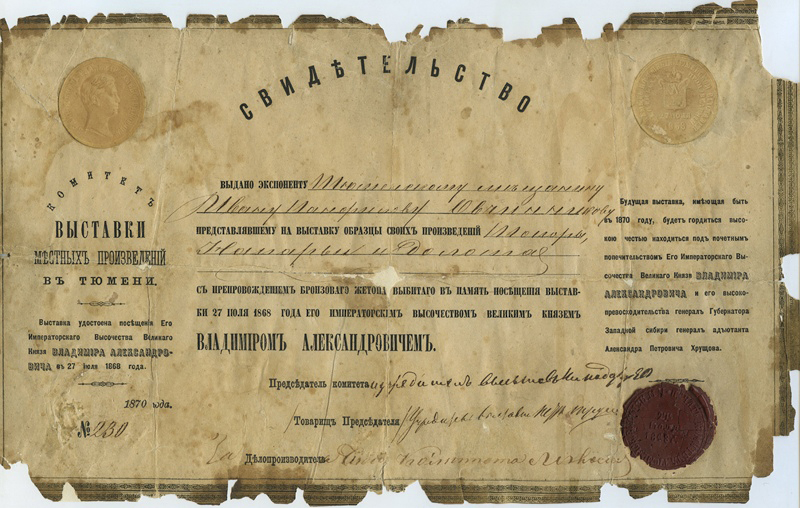 СВИДѢТЕЛЬСТВО
КОМИТЕТЪ
ВЫСТАВКИ
МѢСТНЫХЪ ПРОИЗВЕДЕНІЙ
ВЪ ТЮМЕНИ.
Выставка удостоена посѣщенія Его
Императорскаго Высочества Великаго
Князя ВЛАДИМІРА АЛЕКСАНДРО-
ВИЧА въ 27 іюля 1868 года.
1870 года.
№ 230
ВЫДАНО ЭКСПОНЕНТУ Тюменскому мѣщанину
Ивану Панфилову Овчинникову
ПРЕДСТАВЛЯВШЕМУ НА ВЫСТАВКУ ОБРАЗЦЫ СВОИХЪ ПРОИЗВЕДЕНІЙ Топоры,
и Долота
СЪ ПРЕПРОВОЖДЕНІЕМЪ БРОНЗОВАГО ЖЕТОНА ВЫБИТАГО ВЪ ПАМЯТЬ ПОСѢЩЕНІЯ ВЫСТАВ-
КИ 27 ІЮЛЯ 1868 ГОДА ЕГО ИМПЕРАТОРСКІМЪ ВЫСОЧЕСТВОМЪ ВЕЛИКИМЪ КНЯЗЕМЪ
ВЛАДИМІРОМЪ АЛЕКСАНДРОВИЧЕМЪ.
Предсѣдатель комитета
Товарищъ Предсѣдателя
Дѣлопроизводитель
Будущая выставка, имѣющая быть
въ 1870 году, будетъ гордиться высо-
кою честью находиться подъ почетнымъ
попечительствомъ Его Императорскаго Вы-
сочества Великаго Князя ВЛАДИМІРА
АЛЕКСАНДРОВИЧА и его высоко-
превосходительства генералъ Губернатора
Западной сибири генералъ адъютанта
Александра Петровича Хрущова.